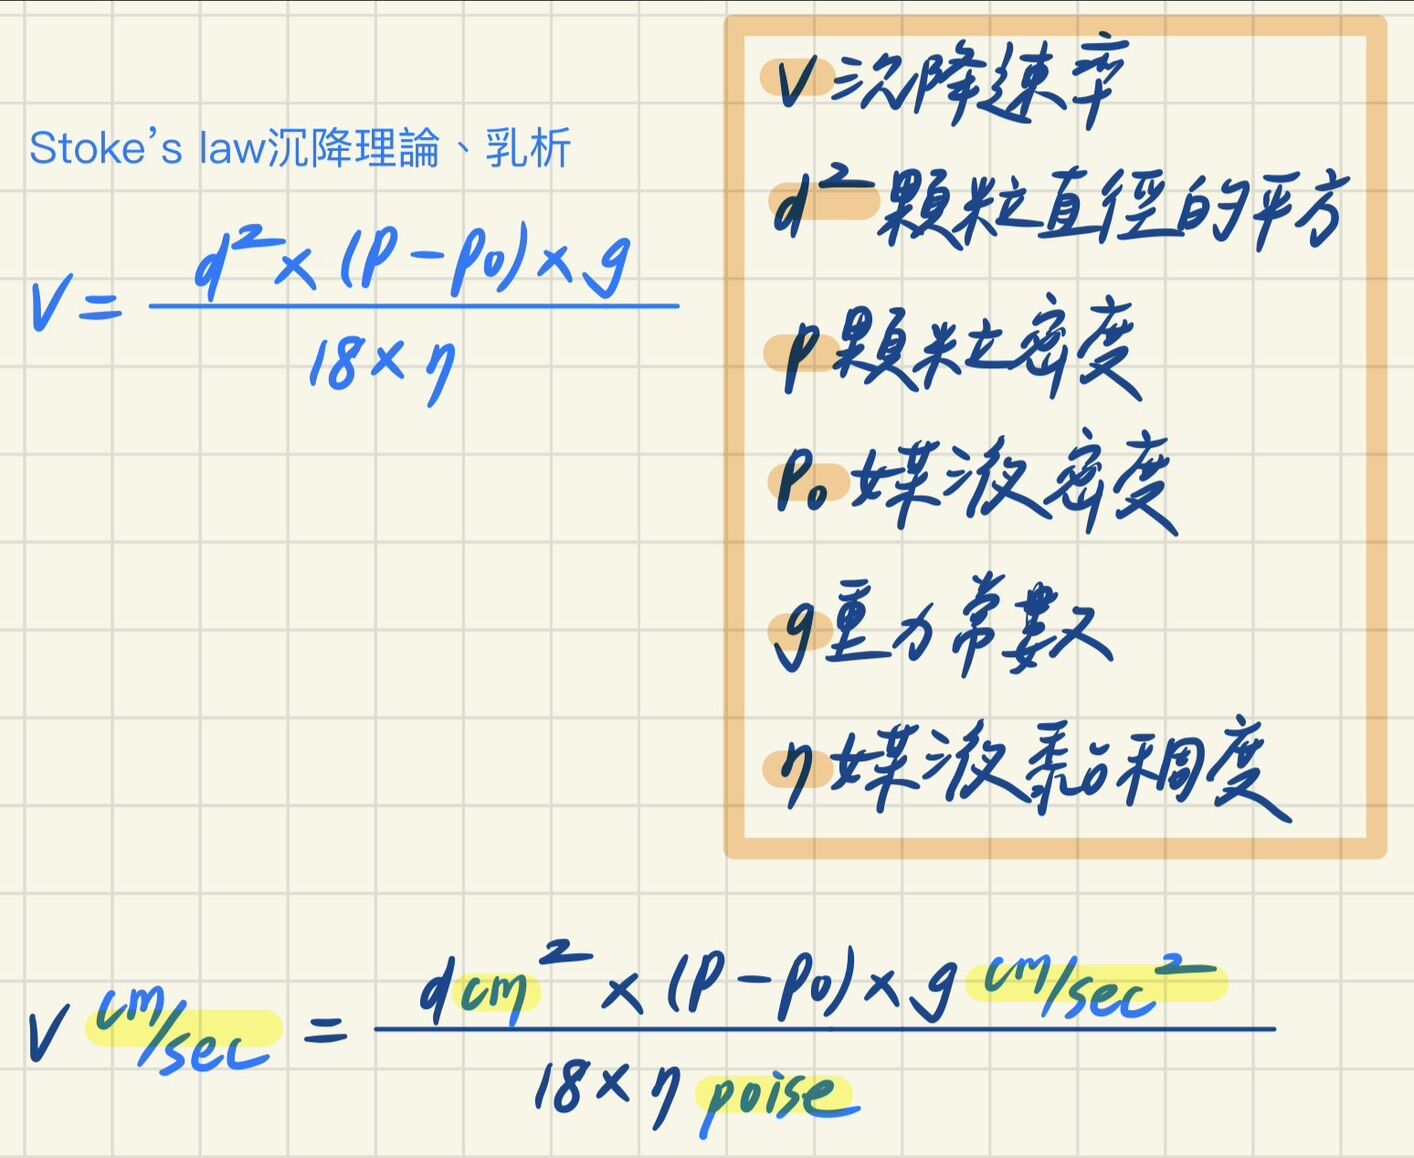 Stoke's law沉降理論、乳析
V = d² × (ρ - ρ₀) × g
18 × η
V 沉降速率
d² 顆粒直徑的平方
ρ 顆粒密度
ρ₀ 媒液密度
g 重力常數
η 媒液黏稠度
V cm/sec = d cm² × (ρ - ρ₀) × g cm/sec²
18 × η poise